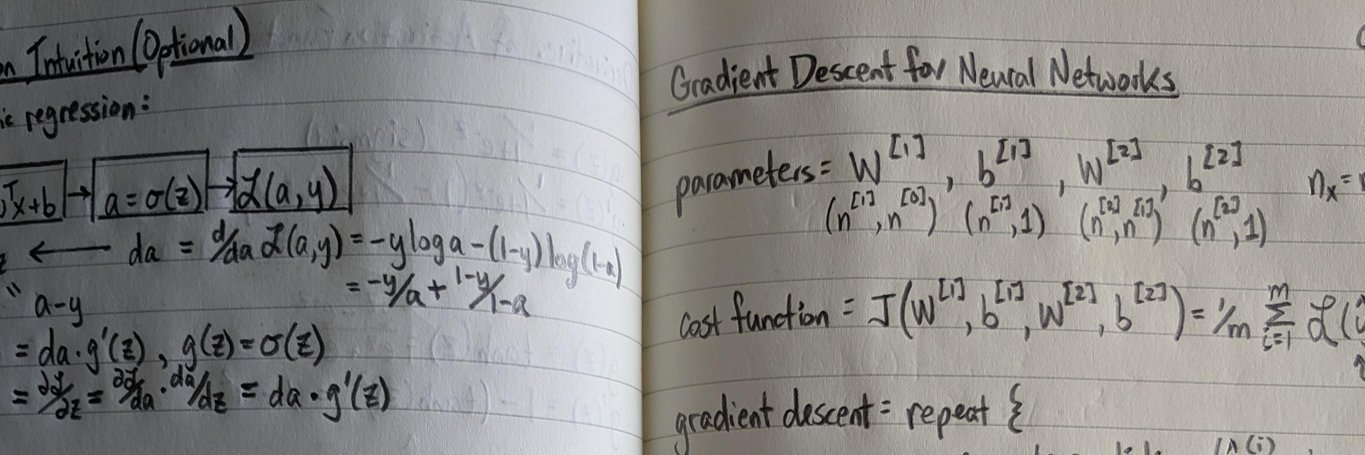 Intuition (Optional)
regression:
x+b → a=σ(z) → ℒ(a,y)
← da = d/da ℒ(a,y) = -yloga-(1-y)log(1-a)
" a-y = -y/a + 1-y/1-a
= da·g'(z), g(z)=σ(z)
= ∂ℒ/∂z = ∂ℒ/da · da/dz = da·g'(z)
Gradient Descent for Neural Networks
parameters = W^[1], b^[1], W^[2], b^[2] n_x =
(n^[1],n^[0]) (n^[1],1) (n^[2],n^[1]) (n^[2],1)
cost function = J(W^[1],b^[1],W^[2],b^[2]) = 1/m Σ_{i=1}^{m} ℒ(
gradient descent = repeat {